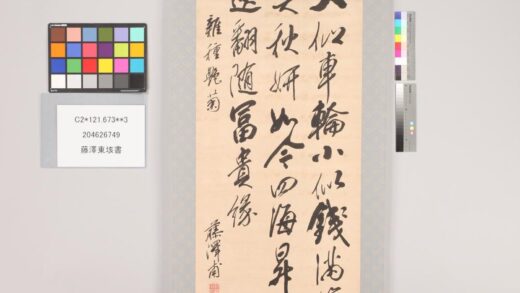 大似車輪小似錢満
秋妍如今四海昇
翻随冨貴縁
雜種艶菊
藤澤甫
C2*121.673**3
204626749
藤澤東垓書